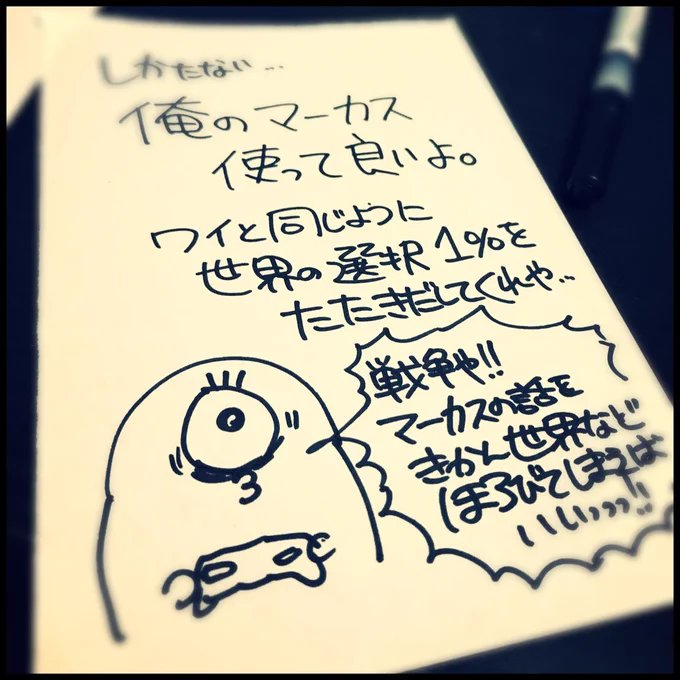 しかたない…
俺のマーカス
使って良いよ。
ワイと同じように
世界の選択1%を
たたきだしてくれや…
戦争や!!
マーカスの話を
きかん世界など
ほろびてしまえば
いいっっっ!!